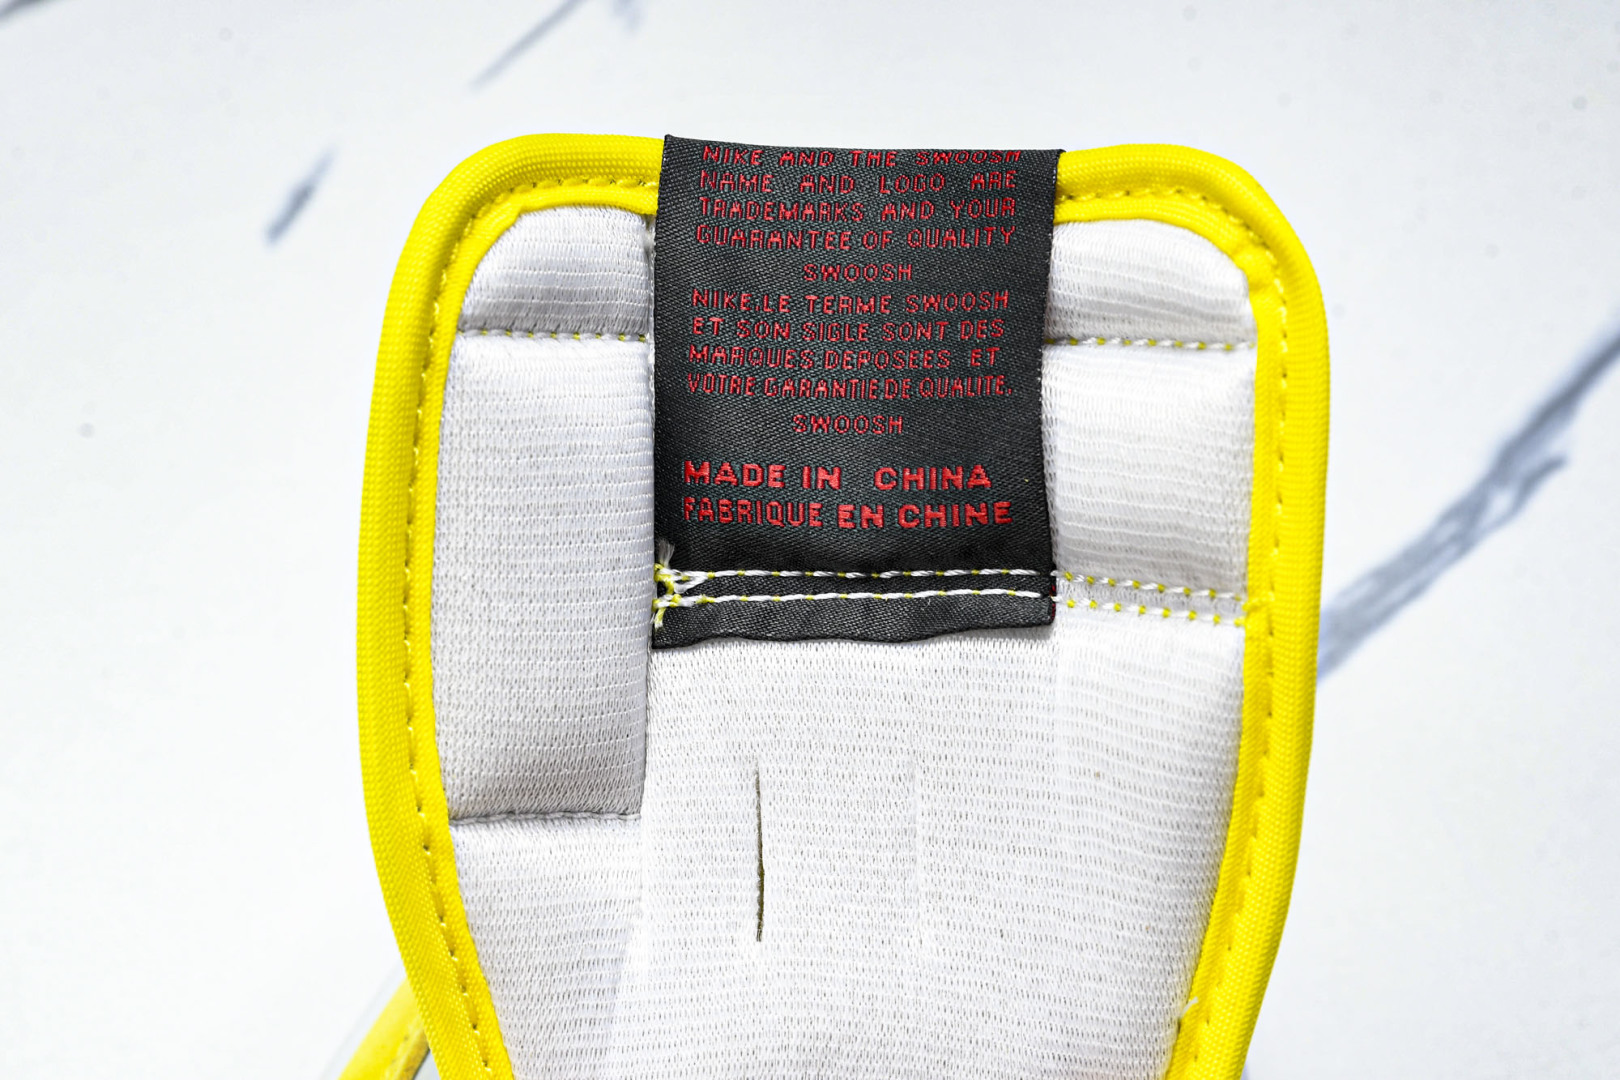 NIKE AND THE SWOOSH
NAME AND LOGO ARE
TRADEMARKS AND YOUR
GUARANTEE OF QUALITY
SWOOSH
NIKE.LE TERME SWOOSH
ET SON SIGLE SONT DES
MARQUES DEPOSEES ET
VOTRE GARANTIE DE QUALITE.
SWOOSH
MADE IN CHINA
FABRIQUE EN CHINE